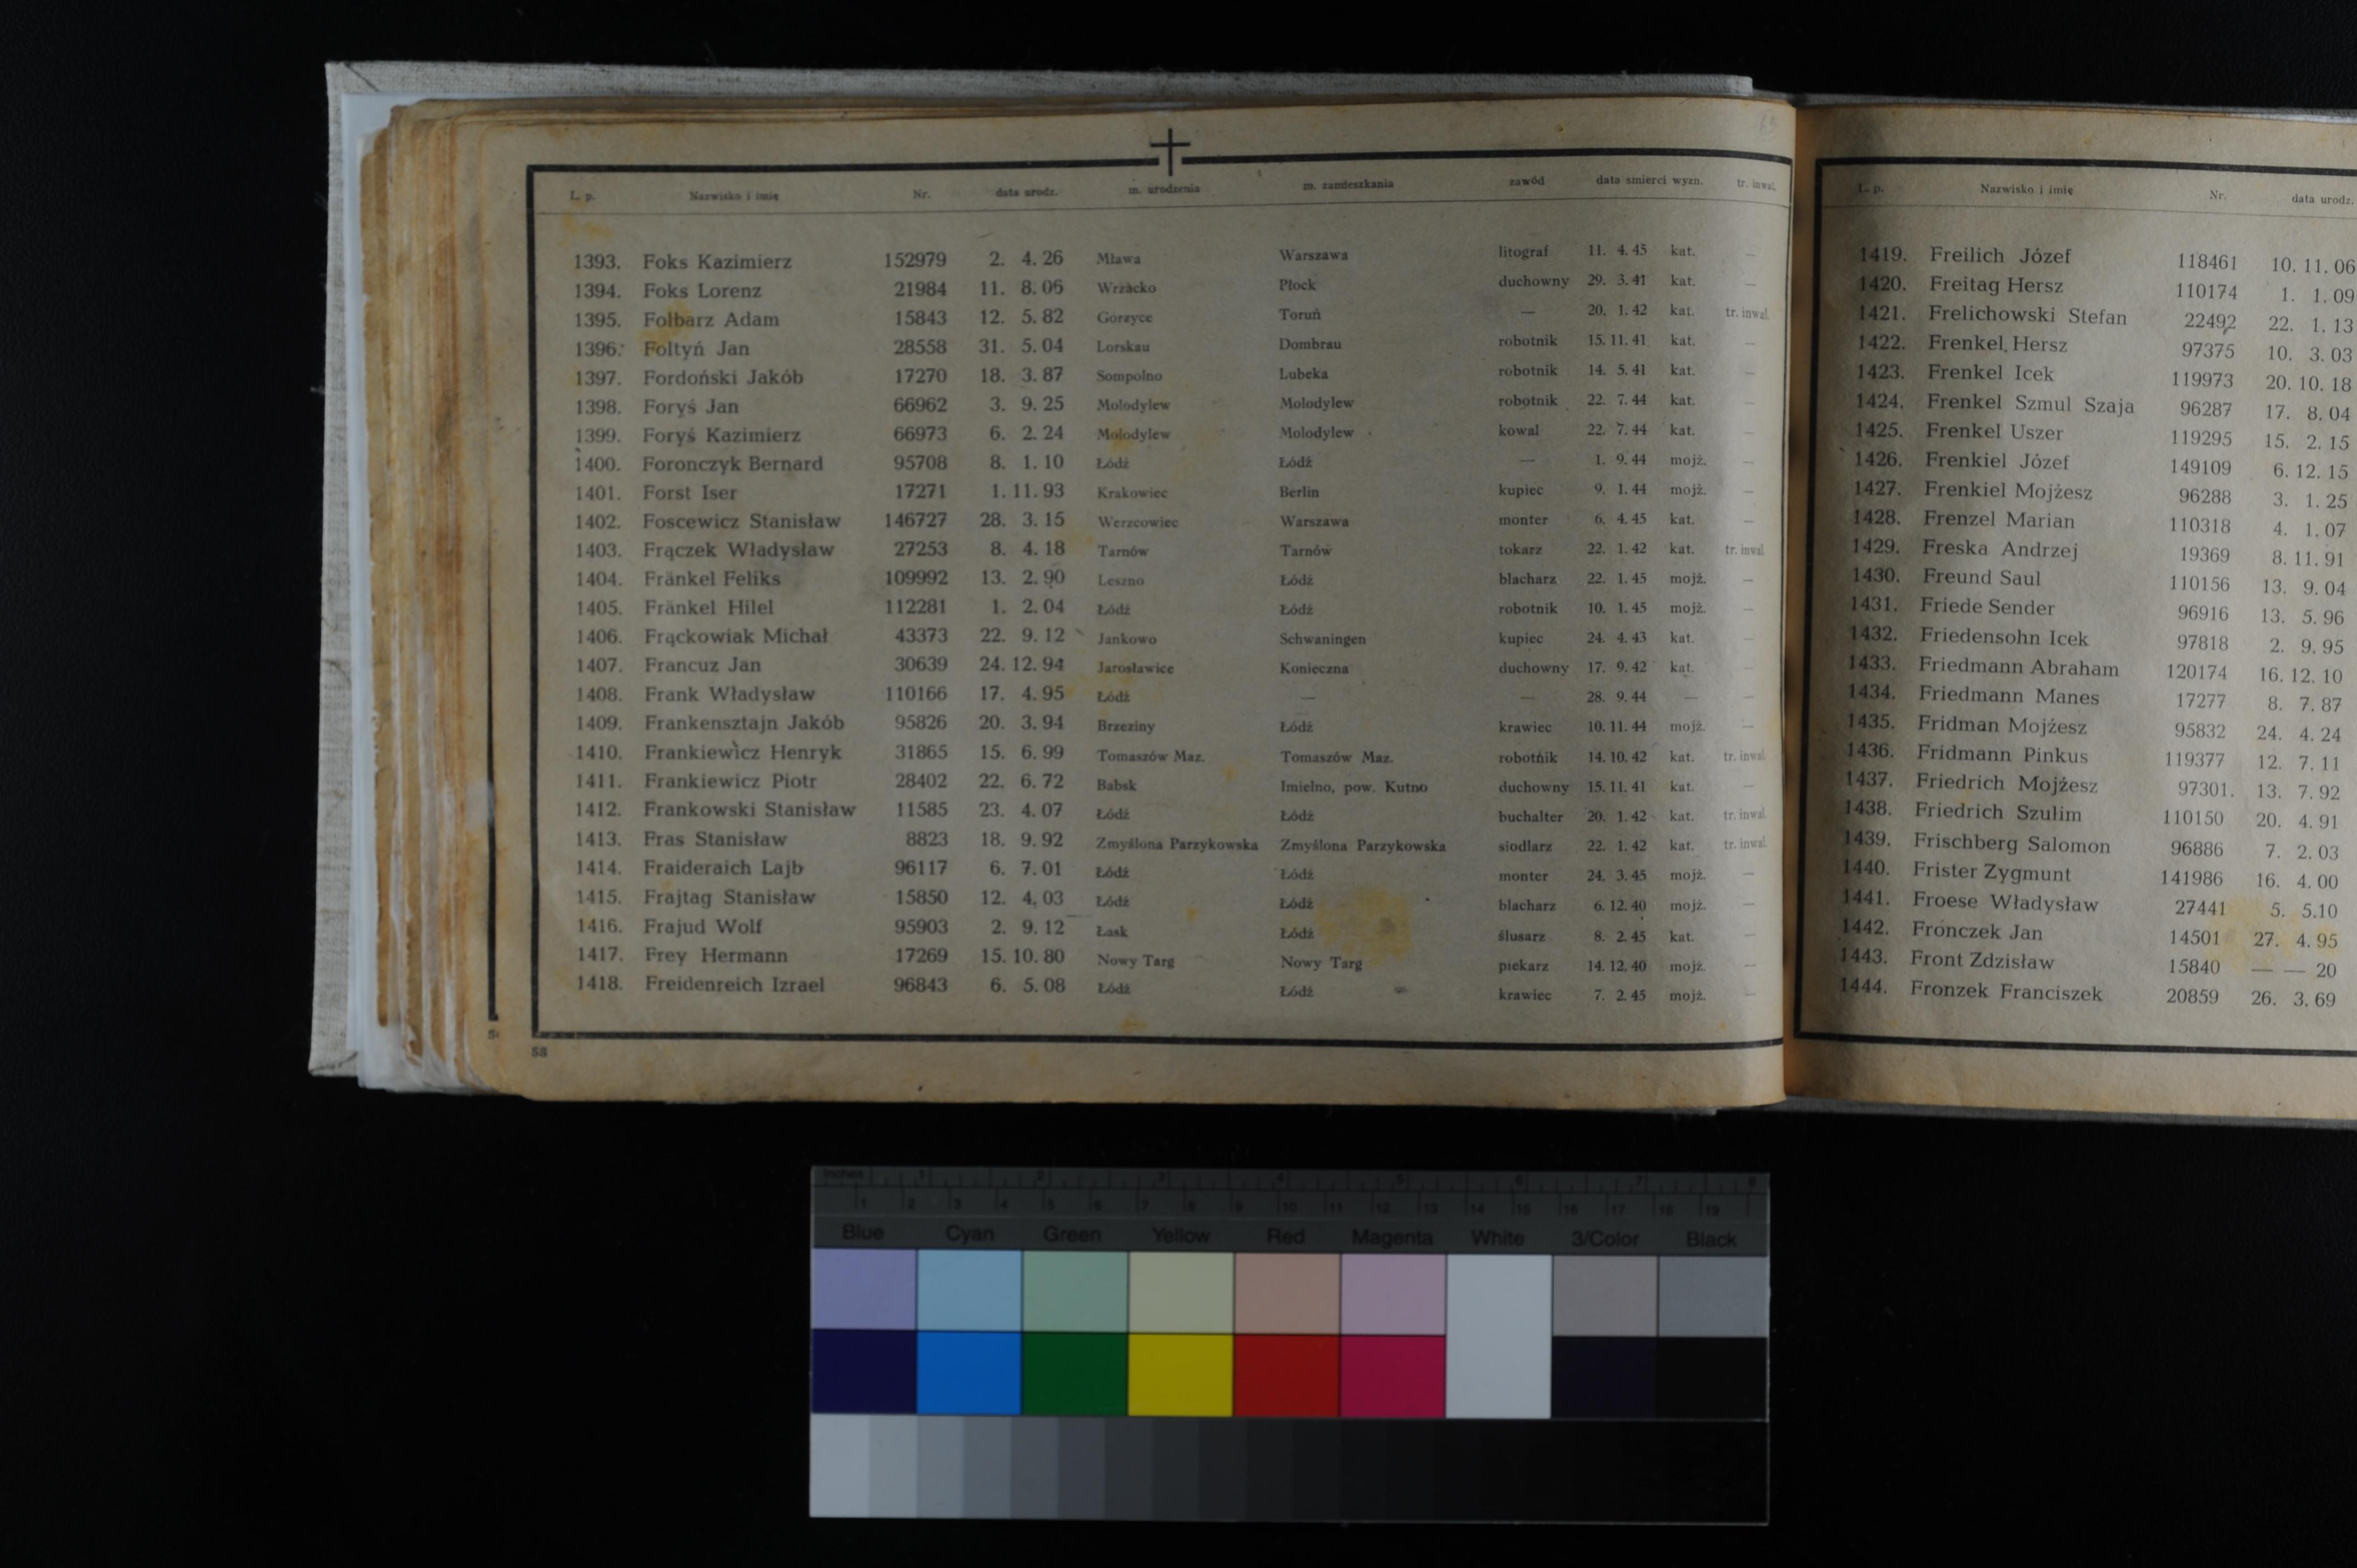 L. p. Nazwisko i imię Nr. data urodz. m. urodzenia m. zamieszkania zawód data smierci wyzn. tr. inwal.
1393. Foks Kazimierz 152979 2. 4. 26 Mława Warszawa litograf 11. 4. 45 kat. —
1394. Foks Lorenz 21984 11. 8. 06 Wrzącko Płock duchowny 29. 3. 41 kat. —
1395. Folbarz Adam 15843 12. 5. 82 Gorzyce Toruń — 20. 1. 42 kat. tr. inwal.
1396. Foltyń Jan 28558 31. 5. 04 Lorskau Dombrau robotnik 15. 11. 41 kat. —
1397. Fordoński Jakób 17270 18. 3. 87 Sompolno Lubeka robotnik 14. 5. 41 kat. —
1398. Foryś Jan 66962 3. 9. 25 Molodylew Molodylew robotnik 22. 7. 44 kat. —
1399. Foryś Kazimierz 66973 6. 2. 24 Molodylew Molodylew kowal 22. 7. 44 kat. —
1400. Foronczyk Bernard 95708 8. 1. 10 Łódź Łódź — 1. 9. 44 mojż. —
1401. Forst Iser 17271 1. 11. 93 Krakowiec Berlin kupiec 9. 1. 44 mojż. —
1402. Foscewicz Stanisław 146727 28. 3. 15 Werzcowiec Warszawa monter 6. 4. 45 kat. —
1403. Frączek Władysław 27253 8. 4. 18 Tarnów Tarnów tokarz 22. 1. 42 kat. tr. inwal.
1404. Fränkel Feliks 109992 13. 2. 90 Leszno Łódź blacharz 22. 1. 45 mojż. —
1405. Fränkel Hilel 112281 1. 2. 04 Łódź Łódź robotnik 10. 1. 45 mojż. —
1406. Frąckowiak Michał 43373 22. 9. 12 Jankowo Schwaningen kupiec 24. 4. 43 kat. —
1407. Francuz Jan 30639 24. 12. 94 Jarosławice Konieczna duchowny 17. 9. 42 kat. —
1408. Frank Władysław 110166 17. 4. 95 Łódź — — 28. 9. 44 — —
1409. Frankensztajn Jakób 95826 20. 3. 94 Brzeziny Łódź krawiec 10. 11. 44 mojż. —
1410. Frankiewicz Henryk 31865 15. 6. 99 Tomaszów Maz. Tomaszów Maz. robotnik 14. 10. 42 kat. tr. inwal.
1411. Frankiewicz Piotr 28402 22. 6. 72 Babsk Imielno, pow. Kutno duchowny 15. 11. 41 kat. —
1412. Frankowski Stanisław 11585 23. 4. 07 Łódź Łódź buchalter 20. 1. 42 kat. tr. inwal.
1413. Fras Stanisław 8823 18. 9. 92 Zmyślona Parzykowska Zmyślona Parzykowska siodlarz 22. 1. 42 kat. tr. inwal.
1414. Fraideraich Lajb 96117 6. 7. 01 Łódź Łódź monter 24. 3. 45 mojż. —
1415. Frajtag Stanisław 15850 12. 4. 03 Łódź Łódź blacharz 6. 12. 40 mojż. —
1416. Frajud Wolf 95903 2. 9. 12 Łask Łódź ślusarz 8. 2. 45 kat. —
1417. Frey Hermann 17269 15. 10. 80 Nowy Targ Nowy Targ piekarz 14. 12. 40 mojż. —
1418. Freidenreich Izrael 96843 6. 5. 08 Łódź Łódź krawiec 7. 2. 45 mojż. —
58
L. p. Nazwisko i imię Nr. data urodz.
1419. Freilich Józef 118461 10. 11. 06
1420. Freitag Hersz 110174 1. 1. 09
1421. Frelichowski Stefan 22492 22. 1. 13
1422. Frenkel Hersz 97375 10. 3. 03
1423. Frenkel Icek 119973 20. 10. 18
1424. Frenkel Szmul Szaja 96287 17. 8. 04
1425. Frenkel Uszer 119295 15. 2. 15
1426. Frenkiel Józef 149109 6. 12. 15
1427. Frenkiel Mojżesz 96288 3. 1. 25
1428. Frenzel Marian 110318 4. 1. 07
1429. Freska Andrzej 19369 8. 11. 91
1430. Freund Saul 110156 13. 9. 04
1431. Friede Sender 96916 13. 5. 96
1432. Friedensohn Icek 97818 2. 9. 95
1433. Friedmann Abraham 120174 16. 12. 10
1434. Friedmann Manes 17277 8. 7. 87
1435. Fridman Mojżesz 95832 24. 4. 24
1436. Fridmann Pinkus 119377 12. 7. 11
1437. Friedrich Mojżesz 97301. 13. 7. 92
1438. Friedrich Szulim 110150 20. 4. 91
1439. Frischberg Salomon 96886 7. 2. 03
1440. Frister Zygmunt 141986 16. 4. 00
1441. Froese Władysław 27441 5. 5.10
1442. Fronczek Jan 14501 27. 4. 95
1443. Front Zdzisław 15840 — — 20
1444. Fronzek Franciszek 20859 26. 3. 69
Inches 1 2 3 4 5 6 7 8
1 2 3 4 5 6 7 8 9 10 11 12 13 14 15 16 17 18 19
Blue Cyan Green Yellow Red Magenta White 3/Color Black